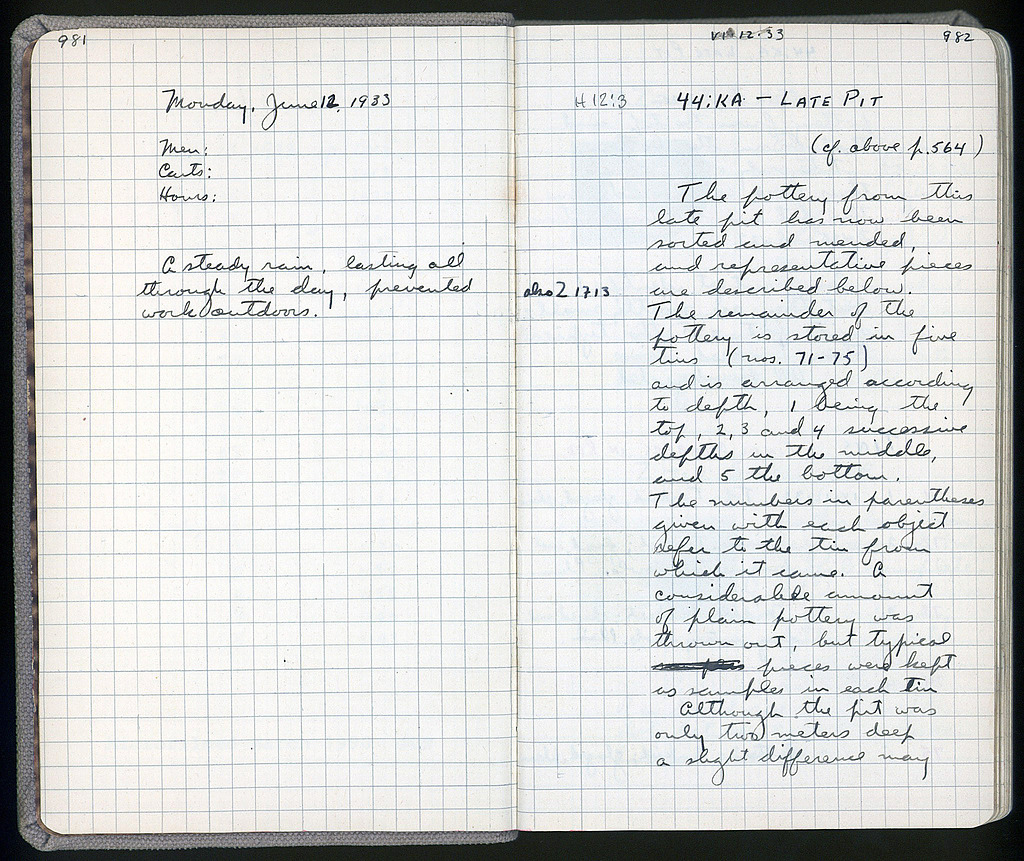 981
Monday, June 12, 1933
Men:
Carts:
Hours:
A steady rain, lasting all
through the day, prevented
work outdoors.
VI 12.33
982
H 12:3
44:KA - LATE PIT
(cf. above p.564)
The pottery from this
late pit has now been
sorted and mended,
and representative pieces
also Z 1713
are described below.
The remainder of the
pottery is stored in five
tins (nos. 71-75)
and is arranged according
to depth, 1 being the
top, 2, 3 and 4 successive
depths in the middle,
and 5 the bottom.
The numbers in parentheses
given with each object
refer to the tin from
which it came. A
considerable amount
of plain pottery was
thrown out, but typical
samples pieces were kept
as samples in each tin
Although the pit was
only two meters deep
a slight difference may